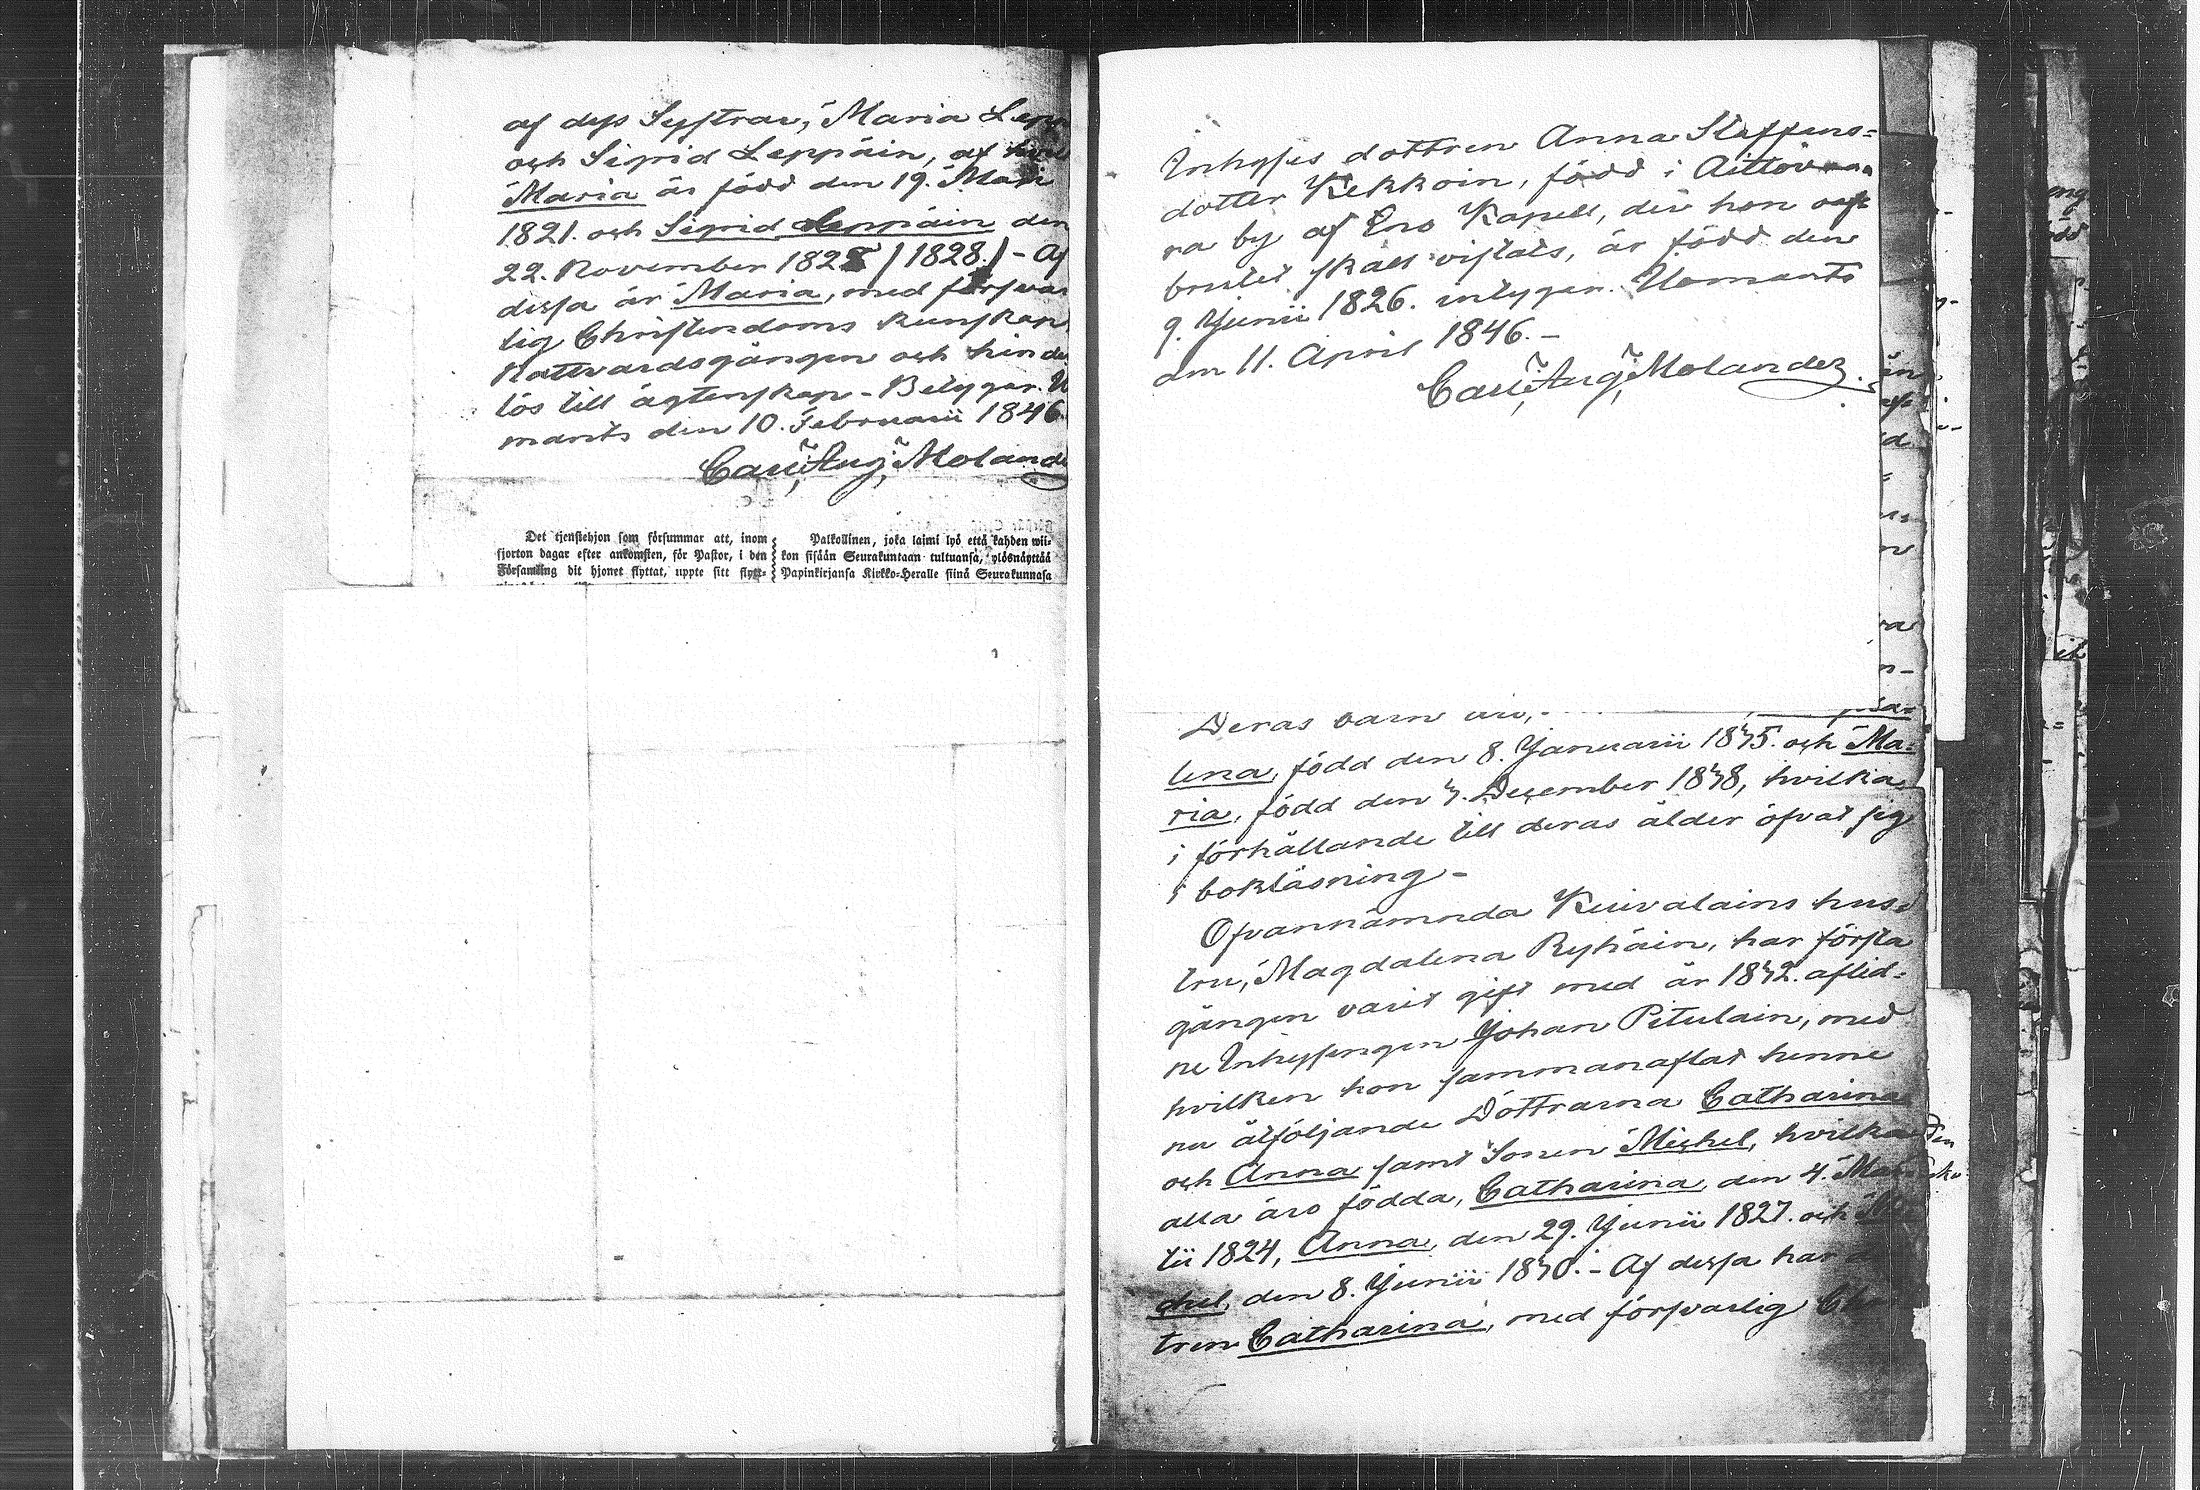 af dess Systrar, Maria Lepp
och Sigrid Leppäin, af
Maria är född den 19. Martii
1821. och Sigrid Leppäin den
22. November 1828 / 1828./ - Af
dessa är Maria, med försvar
lig Christendoms kunskap
Nattvardsgången och hinder
lös till ägtenskap - Betygar. U
mants den 10. Februarii 1846.
Carl Aug. Molande
Det tjenstehjon som försummar att, inom
fjorton dagar efter ankomsten, för Pastor, i den
Församling dit hjonet flyttat, uppte sitt flytt-
Palkollinen, joka laimi lyö että kahden wii-
kon sisään Seurakuntaan tultuansa, ylösnäyttää
Papinkirjansa Kirkko-Heralle siinä Seurakunnasa
Inhyses dottren Anna Staffens=
dotter Kekkoin, född i Aittova
ra by af Eno Kapell, der hon oaf=
brutet skall vistats, är född den
9. Junii 1826. intygar. Ilomants
den 11. April 1846. -
Carl Aug. Molander.
Deras barn äro,
lena, född den 8. Januarii 1835. och Ma=
ria, född den 3. December 1838, hvilka
i förhållande till deras ålder öfvat sig
i bokläsning -
Ofvannämnda Kuivalains hus=
tru, Magdalena Ryhäin, har första
gången varit gift med år 1832. aflid=
ne Inhysingen Johan Pitulain, med
hvilken hon sammanaflat henne
nu åtföljande Döttrarna Catharina
och Anna samt Sonen Michel, hvilka
alla äro födda, Catharina, den 4. Mar
tii 1824, Anna, den 29. Junii 1827. och Mi
chel, den 8. Junii 1830. - Af dessa har d
tren Catharina, med försvarlig Ch